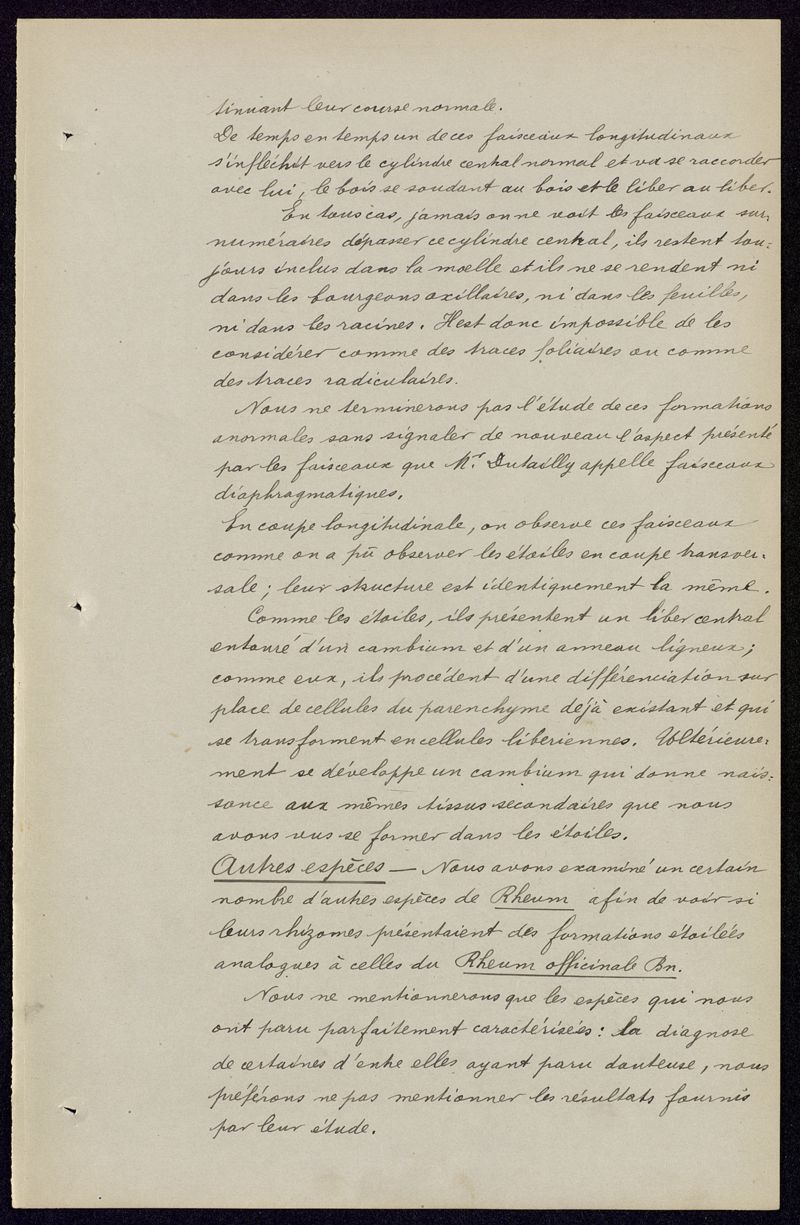 tinuant leur course normale.
De temps en temps un de ces faisceaux longitudinaux
s'infléchit vers le cylindre central normal et va se raccorder
avec lui, le bois se soudant au bois et le liber au liber.
En tous cas, jamais on ne voit les faisceaux sur-
numéraires dépasser ce cylindre central, ils restent tou-
jours inclus dans la moelle et ils ne se rendent ni
dans les bourgeons axillaires, ni dans les feuilles,
ni dans les racines. Il est donc impossible de les
considérer comme des traces foliaires ou comme
des traces radiculaires.
Nous ne terminerons pas l'étude de ces formations
anormales sans signaler de nouveau l'aspect présenté
par les faisceaux que Mr. Dutailly appelle faisceaux
diaphragmatiques.
En coupe longitudinale, on observe ces faisceaux
comme on a pû observer les étoiles en coupe transver-
sale; leur structure est identiquement la même.
Comme les étoiles, ils présentent un liber central
entouré d'un cambium et d'un anneau ligneux;
comme eux, ils procédent d'une différenciation sur
place de cellules du parenchyme déjà existant et qui
se transforment en cellules libériennes. Ultérieure-
ment se développe un cambium qui donne nais-
sance aux mêmes tissus secondaires que nous
avons vus se former dans les étoiles.
Autres espèces — Nous avons examiné un certain
nombre d'autres espèces de Rheum afin de voir si
leurs rhizomes présentaient des formations étoilées
analogues à celles du Rheum officinale Bn.
Nous ne mentionnerons que les espèces qui nous
ont paru parfaitement caractérisées: la diagnose
de certaines d'entre elles ayant paru douteuse, nous
préférons ne pas mentionner les résultats fournis
par leur étude.